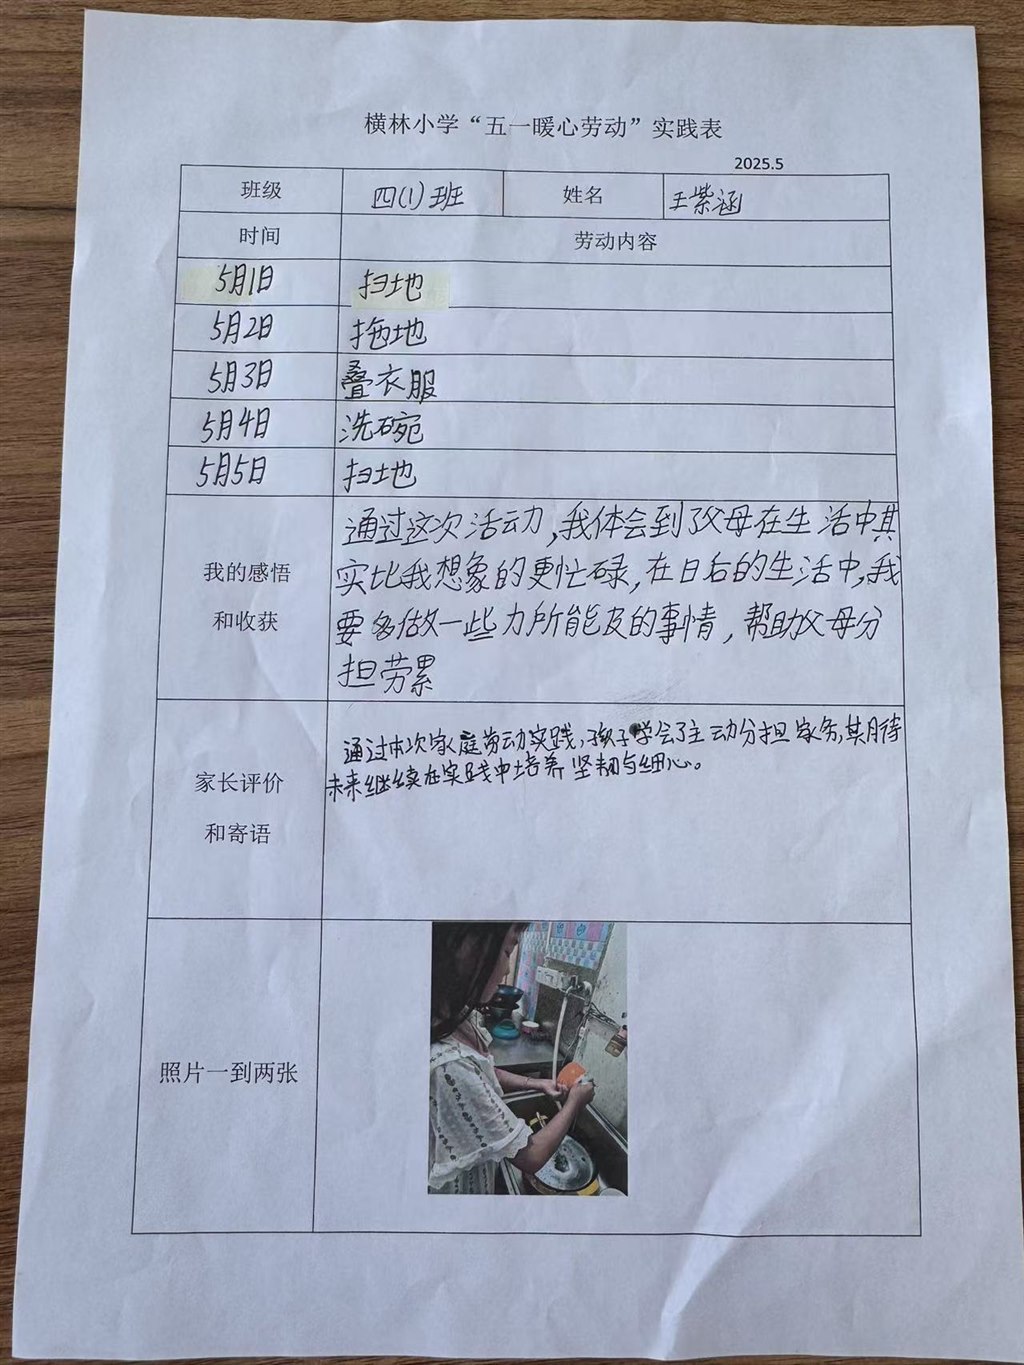 横林小学“五一暖心劳动”实践表
2025.5
班级 四(1)班 姓名 王紫涵
时间 劳动内容
5月1日 扫地
5月2日 拖地
5月3日 叠衣服
5月4日 洗碗
5月5日 扫地
我的感悟
和收获
通过这次活动,我体会到了父母在生活中其
实比我想象的更忙碌,在日后的生活中,我
要多做一些力所能及的事情,帮助父母分
担劳累
家长评价
和寄语
通过本次家庭劳动实践,孩子学会了主动分担家务,其月待
未来继续在实践中培养坚韧与细心。
照片一到两张